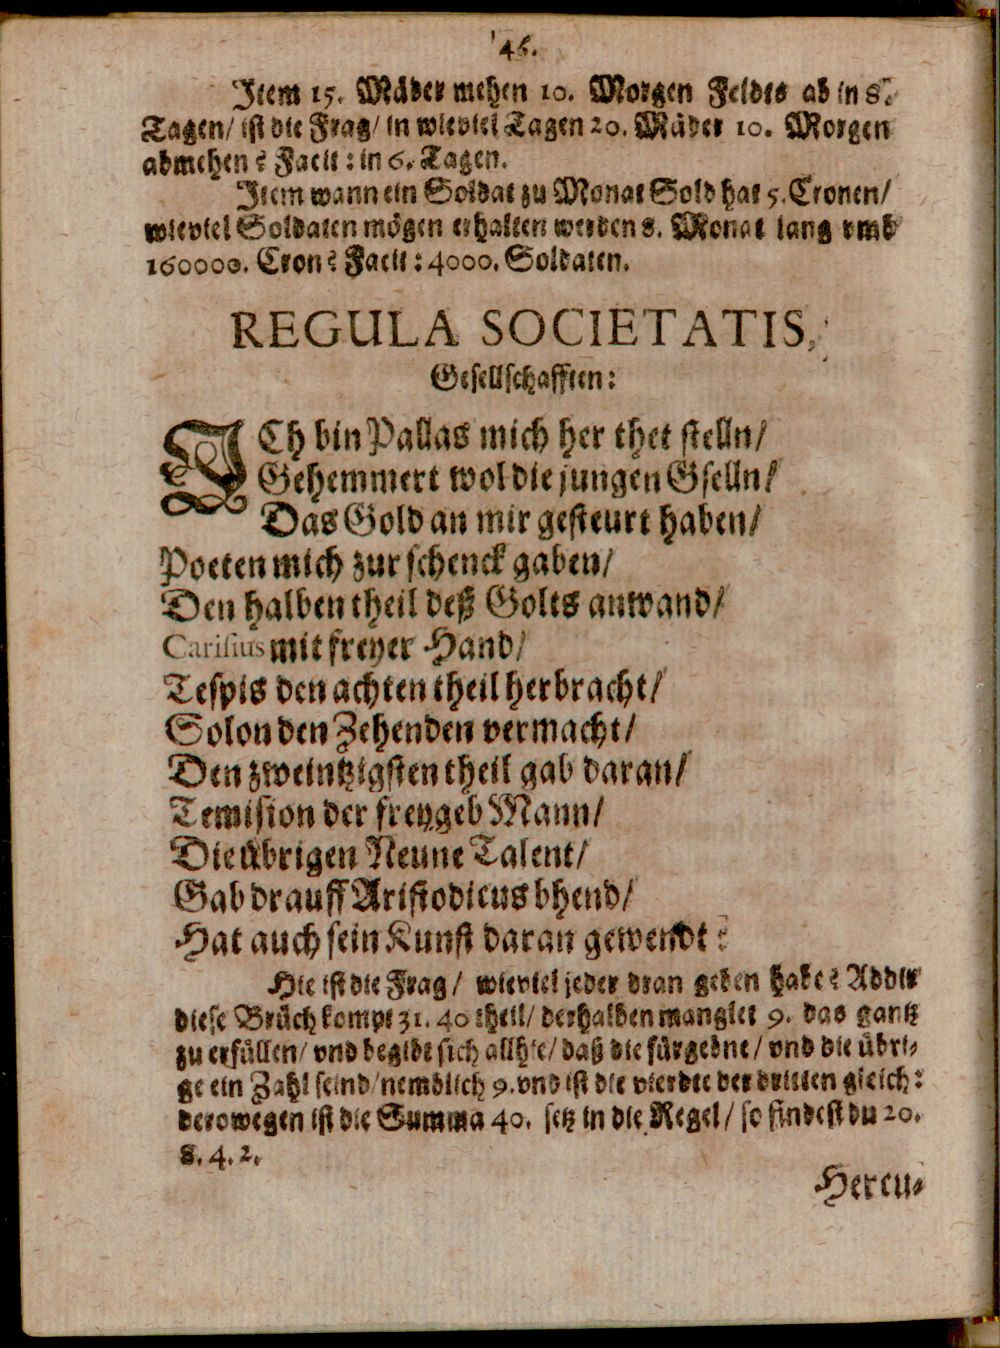 46.
Item 15. Mäder mehen 10. Morgen Feldts ab in 8.
Tagen/ ist die Frag/ in wieviel Tagen 20. Mäder 10. Morgen
abmehen? Facit: in 6. Tagen.
Item wann ein Soldat zu Monat Sold hat 5. Cronen/
wieviel Soldaten mögen erhalten werden 8. Monat lang vmb
160000. Cron? Facit: 4000. Soldaten.
REGULA SOCIETATIS,
Gesellschafften:
ICh bin Pallas mich her thet stelln/
Gehemmert wol die jungen Gselln/
Das Gold an mir gesteurt haben/
Poeten mich zur schenck gaben/
Den halben theil deß Golts anwand/
Carisius mit freyer Hand/
Tespis den achten theil herbracht/
Solon den Zehenden vermacht/
Den zweintzigsten theil gab daran/
Temision der freygeb Mann/
Die übrigen Neune Talent/
Gab drauff Aristodicus bhend/
Hat auch sein Kunst daran gewendt:
Hie ist die Frag/ wieviel jeder dran geben habe? Addir
diese Brüch kompt 31. 40 theil/ derhalben manglet 9. das gantz
zu erfüllen/ vnd begibt sich allhie/ daß die fürgebne/ vnd die übri-
ge ein Zahl seind/ nemblich 9. vnd ist die vierdte der dritten gleich:
derowegen ist die Summa 40. setz in die Regel/ so findest du 20.
8. 4. 2.
Hercu-